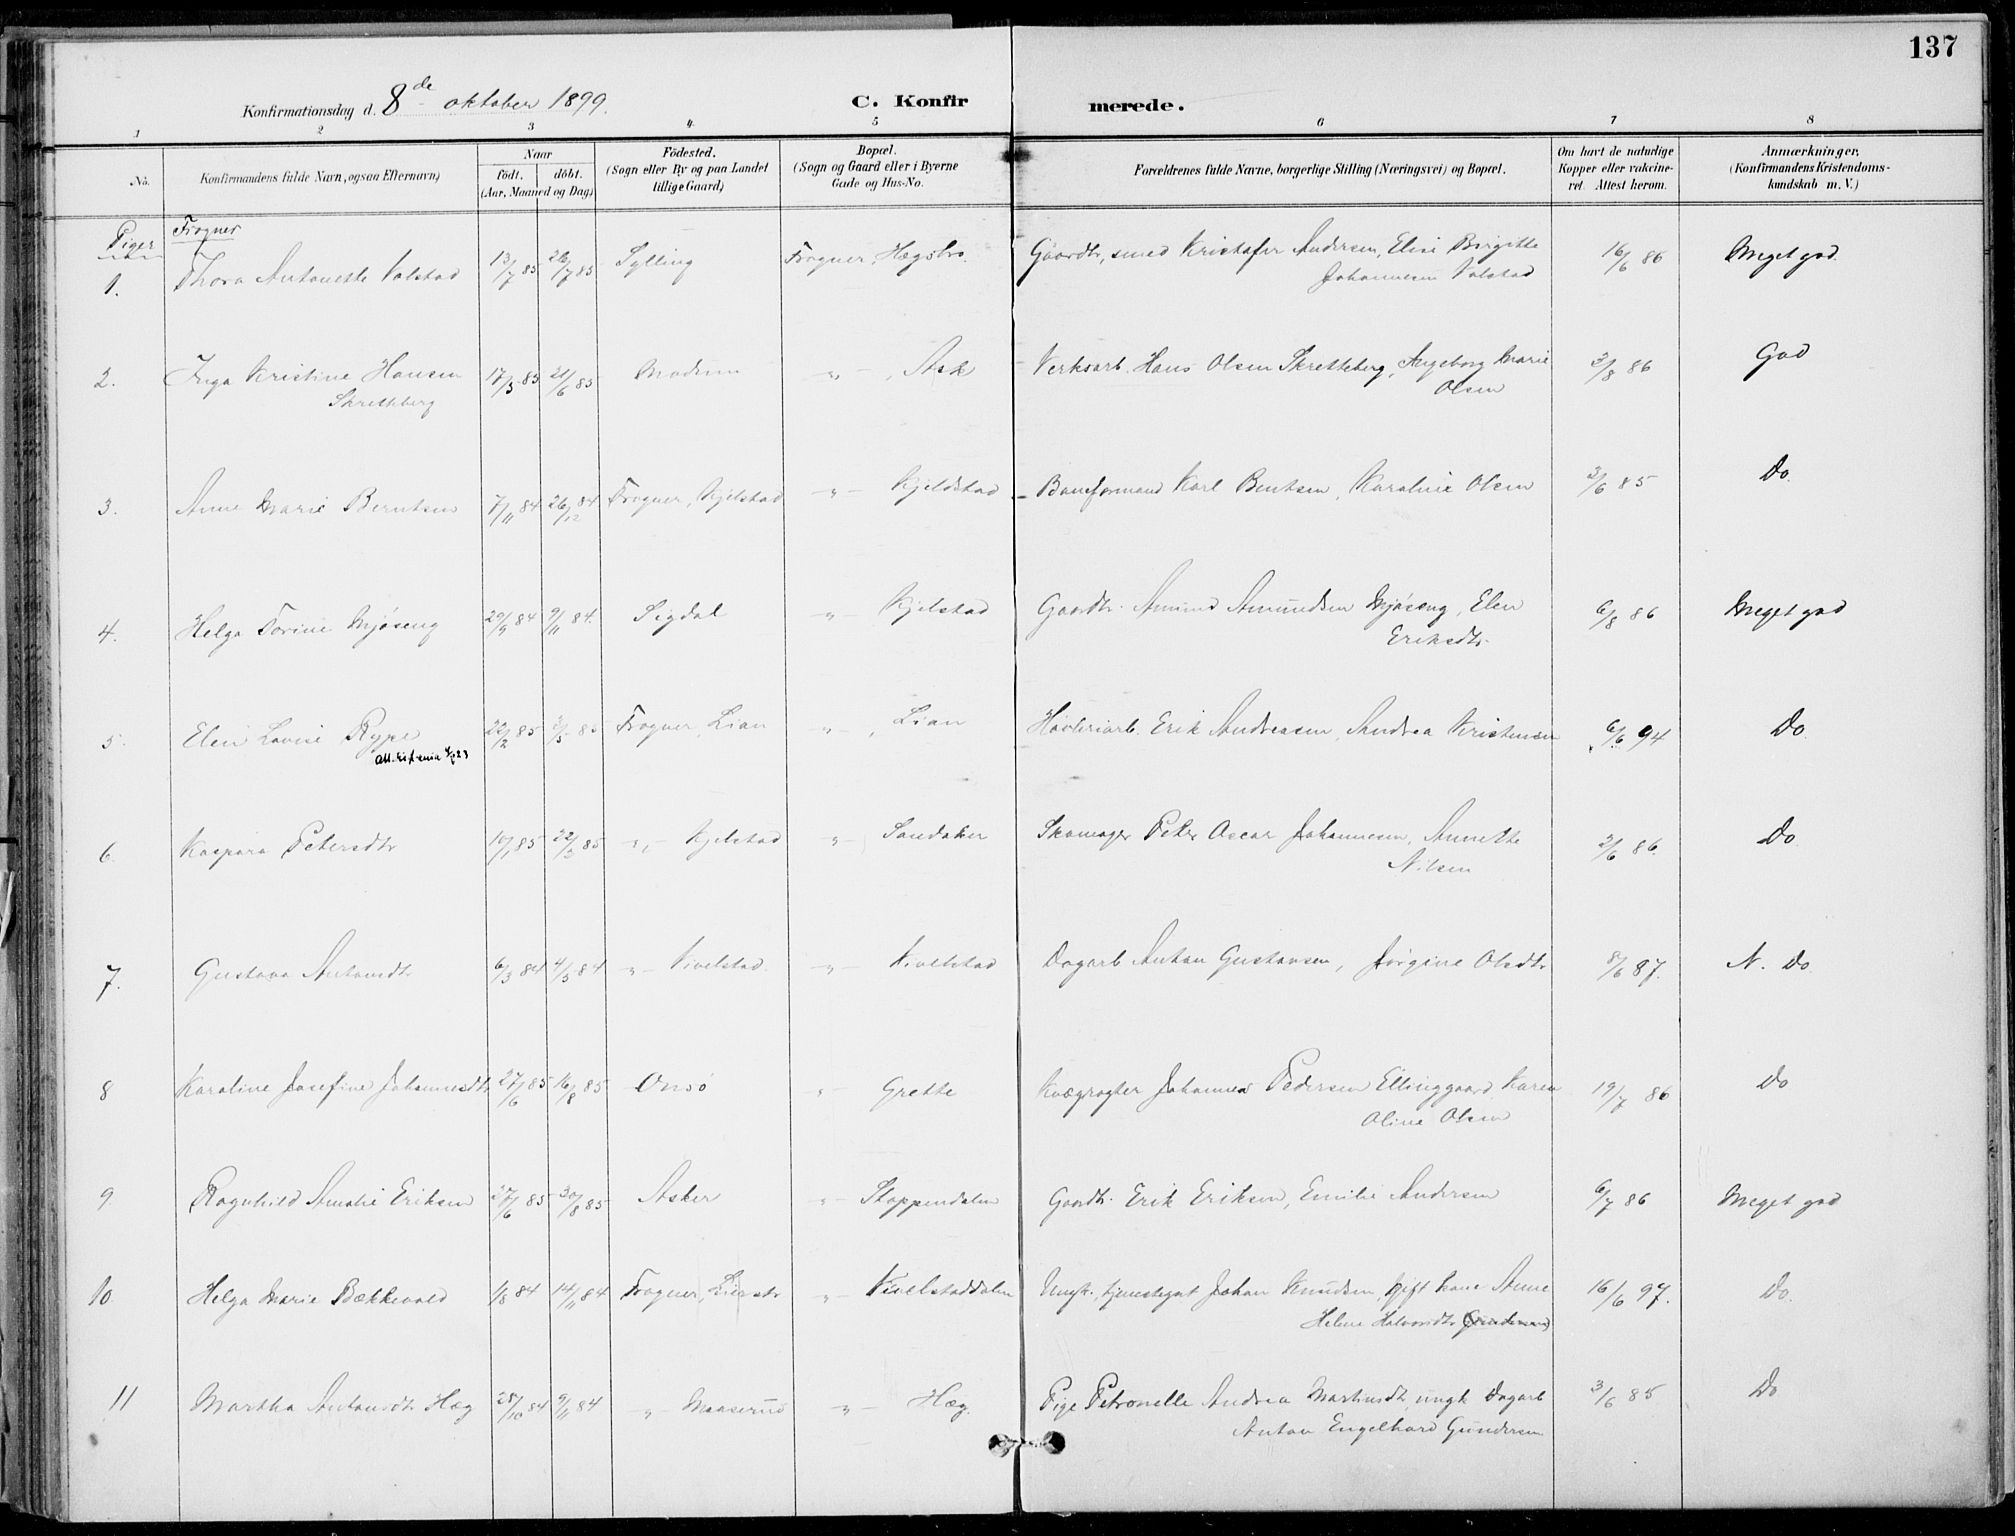 137
Konfirmationsdag d. 8de oktober 1899.
C. Konfirmerede.
1 2 3 4. 5 6 7 8
No. Konfirmandens fulde Navn, ogsaa Efternavn) Naar födt. döbt. (Aar, Maaned og Dag) Födested. (Sogn eller By og paa Landet tillige Gaard) Bopæl. (Sogn og Gaard eller i Byerne Gade og Hus-No. Forældrenes fulde Navne, borgerlige Stilling (Næringsvei) og Bopæl. Om havt de naturlige Kopper eller vakcineret. Attest herom. Anmærkninger, (Konfirmandens Kristendomskundskab m. V.)
Piger Frogner
1. Thora Antonette Valstad 13/7 85 26/7 85 Sylling Frogner, Hægsbro. Gaardbr, smed Kristofer Andersen, Elise Birgitte
Johannesen Valstad 16/6 86 Meget god.
2. Inga Kristine Hansen 17/3 85 21/6 85 Modum „ – , Ask Verksarb. Hans Olsen Skretteberg, Ingeborg Marie 3/8 86 God
Skretteberg Olsen
3. Anne Marie Berntsen 7/11 84 26/12 84 Frogner, Kjelstad „ – Kjeldstad Baneformand Karl Berntsen, Karoline Olsen 3/6 85 Do.
4. Helga Torine Mjøseng 29/9 84 9/11 84. Sigdal „ – Kjelstad Gaardbr. Amund Amundsen Mjøseng, Elen 6/8 86 Meget god
Eriksdtr.
5. Elen Lovise Rype 22/2 85 3/5 85 Frogner, Lian „ – , Lian Høvleriarb. Erik Andreasen, Andrea Kristensen 6/6 94 Do
6. Kaspara Petersdtr 10/1 85 22/3 85 „ – Kjelstad „ – Sandaker Skomager Peter Oscar Johannesen, Annette 2/6 86. Do
Nilsen
7. Gustava Antonsdtr 6/3 84 4/5 84 „ – Kivelstad. „ – Kivelstad Dagarb Anton Gustavsen, Jørgine Olsdtr 8/6 87. N. Do.
8 Karoline Josefine Johannesdtr 27/6 85 16/8 85 Onsø „ – Grette Kvægrøgter Johannes Pedersen Ellinggaard, Karen 19/7 86 Do
Oline Olsen
9 Ragnhild Amalie Eriksen 27/6 85 30/8 85 Asker „ – Stoppendalen Gaardbr. Erik Eriksen, Emilie Andersen 6/7 86 Meget god
10 Helga Marie Bækkevold 1/8 84 14/11 84 Frogner, Lierstr „ – Kivelstaddalen Ungk., tjenestegut Johan Knudsen, gift kone Anne 16/6 97. Do.
Helene Halvorsdtr
11 Martha Antonsdtr Hæg 25/10 84 9/11 84 „ – Maaserud „ – Hæg. Pige Petronelle Andrea Martinsdtr, ungk Dagarb 3/6 85 Do
Anton Engelhard Gundersen